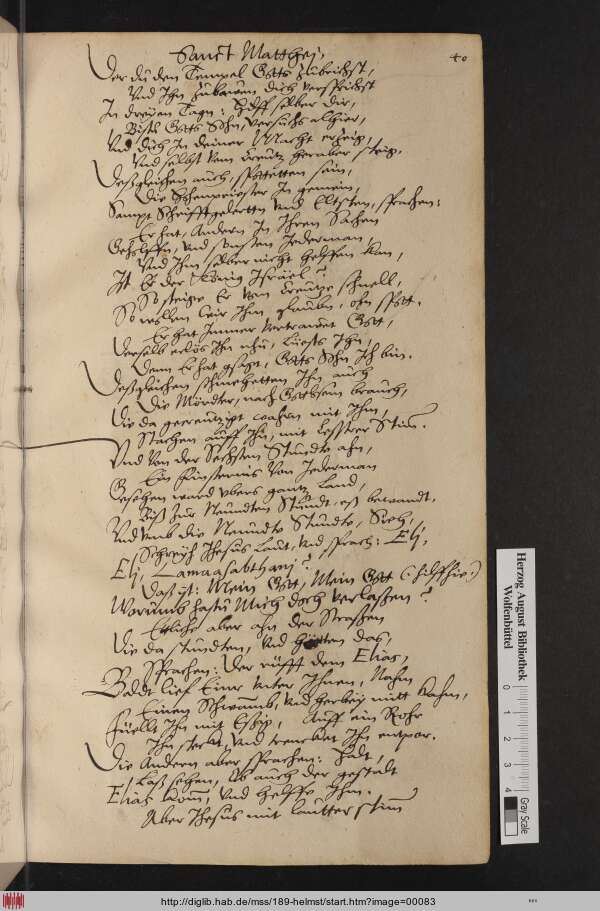 Sanct Matthej,
40
Der du den Tempel Gotts zubrichst,
Und Ihn zubawen dich versprichst
In dreyen Tagn: Hilff selber dir,
Bistu Gotts Sohn, versuchs alhier,
Und dich In deiner Macht erzeig,
Und selbst vom Creutz heraber steig.
Deßgleichen auch, spottetten sein,
Die Hohenpriester In gemein,
Sampt Schrifftgelertten und Eltsten, sprachen:
Er hat, Andern In Ihren Sachen
Geholffen, und sonsten Jederman,
Und Ihm selber nicht helffen kan,
Ist Er der König Israel?
So steige Er vom Creutze schnell,
So wollen wir Ihm glauben, ohn spott.
Er hat Immer vertrawet Gott,
Derselb erlös Ihn nhu, Ihn,
Denn Er hat gesagt, Gotts Sohn Ich bin.
Deßgleichen schmehetten Ihn auch
Die Mörder, nach brauch,
Die da gecreutzigt wahrn mit Ihm,
Stachen auff Ihn, mit Stim.
Und von der Sechsten Stundte ahn,
Ein Finsternis von Jederman
Gesehen ward ubers gantz Land,
Biß zur Neundten Stundt, eß bewandt.
Und umb die Neundte Stundte, Sieh,
Schreyh Jhesus Laut, und sprach: Elj,
Elj, Lamaasabthanj?
Daß ist: Mein Gott, Mein Gott (: hilff hie:)
Worumb hastu Mich doch verlaßen?
Etliche aber ahn der Straßen
Die da stundten, und hörten das,
Sprachen: Der rüfft dem Elias,
Baldt lief Einer unter Ihnen, Nahm
Einen Schwamb, und herbey mitt kahm,
Füellt Ihn mit Essig, Auff ein Rohr
Ihn steckt, und trencket Ihn entpor.
Die Andern aber sprachen: Halt,
Laß sehen, Ob auch der gestalt
Elias kom, und helffe Ihm.
Aber Jhesus mit lautter stim
Herzog August Bibliothek
Wolfenbüttel
0 1 2 3 4
Gray Scale
http://diglib.hab.de/mss/189-helmst/start.htm?image=00083